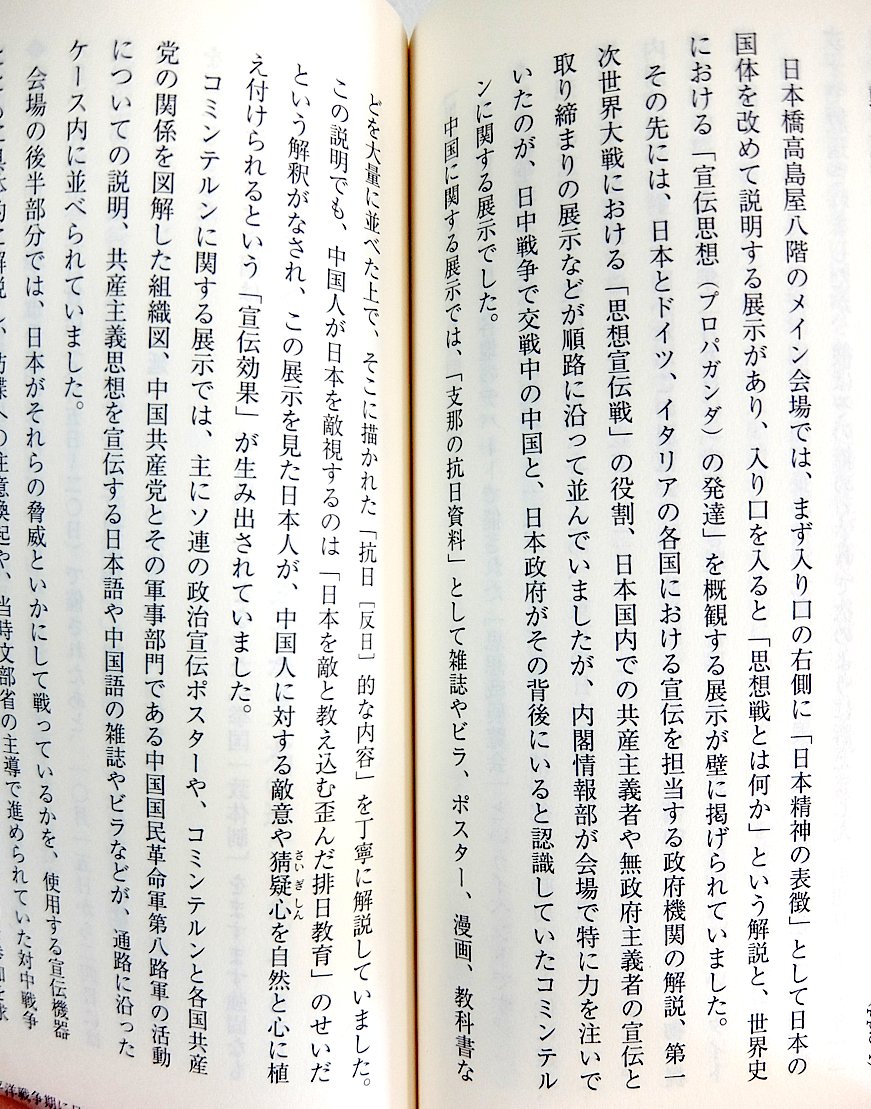 日本橋高島屋八階のメイン会場では、まず入り口の右側に「日本精神の表徴」として日本の
国体を改めて説明する展示があり、入り口を入ると「思想戦とは何か」という解説と、世界史
における「宣伝思想（プロパガンダ）の発達」を概観する展示が壁に掲げられていました。
その先には、日本とドイツ、イタリアの各国における宣伝を担当する政府機関の解説、第一
次世界大戦における「思想宣伝戦」の役割、日本国内での共産主義者や無政府主義者の宣伝と
取り締まりの展示などが順路に沿って並んでいましたが、内閣情報部が会場で特に力を注いで
いたのが、日中戦争で交戦中の中国と、日本政府がその背後にいると認識していたコミンテル
ンに関する展示でした。
中国に関する展示では、「支那の抗日資料」として雑誌やビラ、ポスター、漫画、教科書な
どを大量に並べた上で、そこに描かれた「抗日［反日］的な内容」を丁寧に解説していました。
この説明でも、中国人が日本を敵視するのは「日本を敵と教え込む歪んだ排日教育」のせいだ
という解釈がなされ、この展示を見た日本人が、中国人に対する敵意や猜疑心を自然と心に植
さいぎしん
え付けられるという「宣伝効果」が生み出されていました。
コミンテルンに関する展示では、主にソ連の政治宣伝ポスターや、コミンテルンと各国共産
党の関係を図解した組織図、中国共産党とその軍事部門である中国国民革命軍第八路軍の活動
についての説明、共産主義思想を宣伝する日本語や中国語の雑誌やビラなどが、通路に沿った
ケース内に並べられていました。
会場の後半部分では、日本がそれらの脅威といかにして戦っているかを、使用する宣伝機器
に解説し、防諜への注意喚起や、当時文部省の主導で進められていた対中戦争